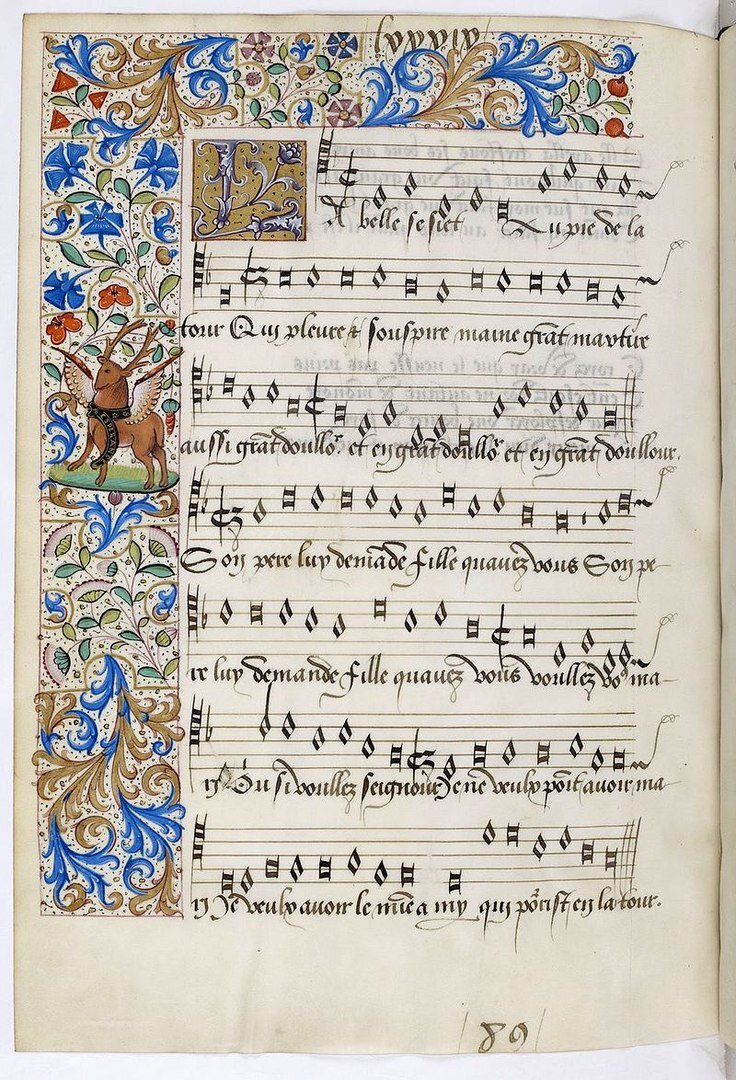 lxxxix
La belle se siet Au pie de la
tour Qui pleure & souspire maine grāt martire
aussi grāt doullor. et en grāt doullor et en grāt doullour.
Son pere luy demāde fille quavez vous Son pe-
re luy demande fille quavez vous voullez vo9 ma-
ry Ou si voullez seignour Je ne veulx poīt avoir ma-
ry Je veulx avoir le mie a my qui porrist en la tour.
89